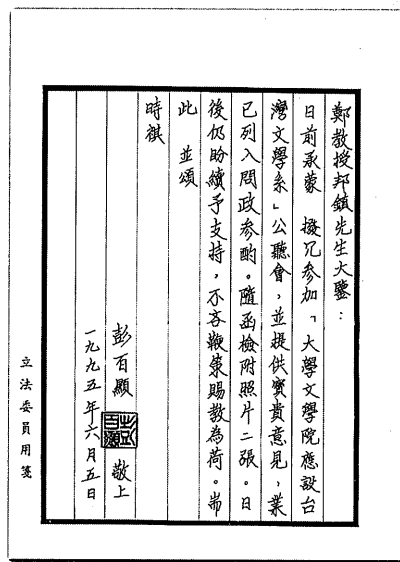 鄭教授邦鎮先生大鑒：
日前承蒙　撥冗參加「大學文學院應設台
灣文學系」公聽會，並提供寶貴意見，業
已列入問政參酌。隨函檢附照片二張。日
後仍盼續予支持，不吝鞭策賜教為荷。耑
此　並頌
時祺
彭百顯　敬上
彭百顯
一九九五年六月五日
立法委員用箋